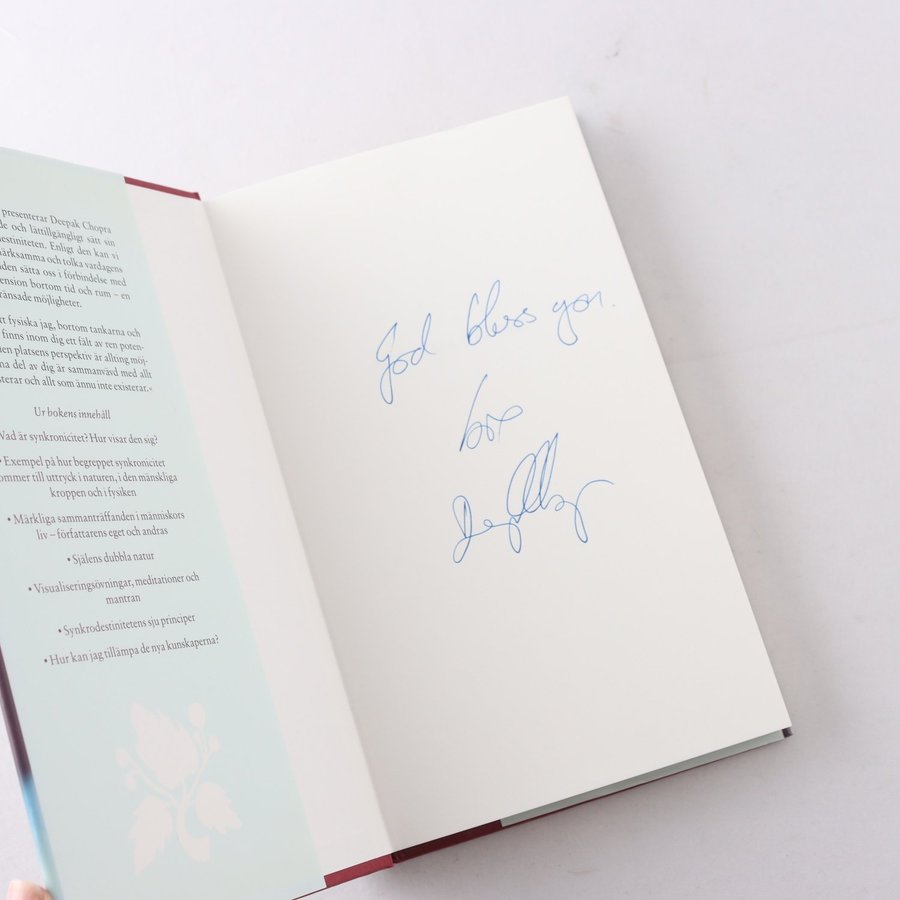 presenterar Deepak Chopra
de och lättillgängligt sätt sin
destiniteten. Enligt den kan vi
märksamma och tolka vardagens
nden sätta oss i förbindelse med
ension bortom tid och rum – en
ränsade möjligheter.
tt fysiska jag, bortom tankarna och
finns inom dig ett fält av ren poten-
en platsens perspektiv är allting möj-
na del av dig är sammanvävd med allt
sterar och allt som ännu inte existerar.«
Ur bokens innehåll
Vad är synkronicitet? Hur visar den sig?
• Exempel på hur begreppet synkronicitet
ommer till uttryck i naturen, i den mänskliga
kroppen och i fysiken
• Märkliga sammanträffanden i människors
liv – författarens eget och andras
• Själens dubbla natur
• Visualiseringsövningar, meditationer och
mantran
• Synkrodestinitetens sju principer
• Hur kan jag tillämpa de nya kunskaperna?
God bless you.
love